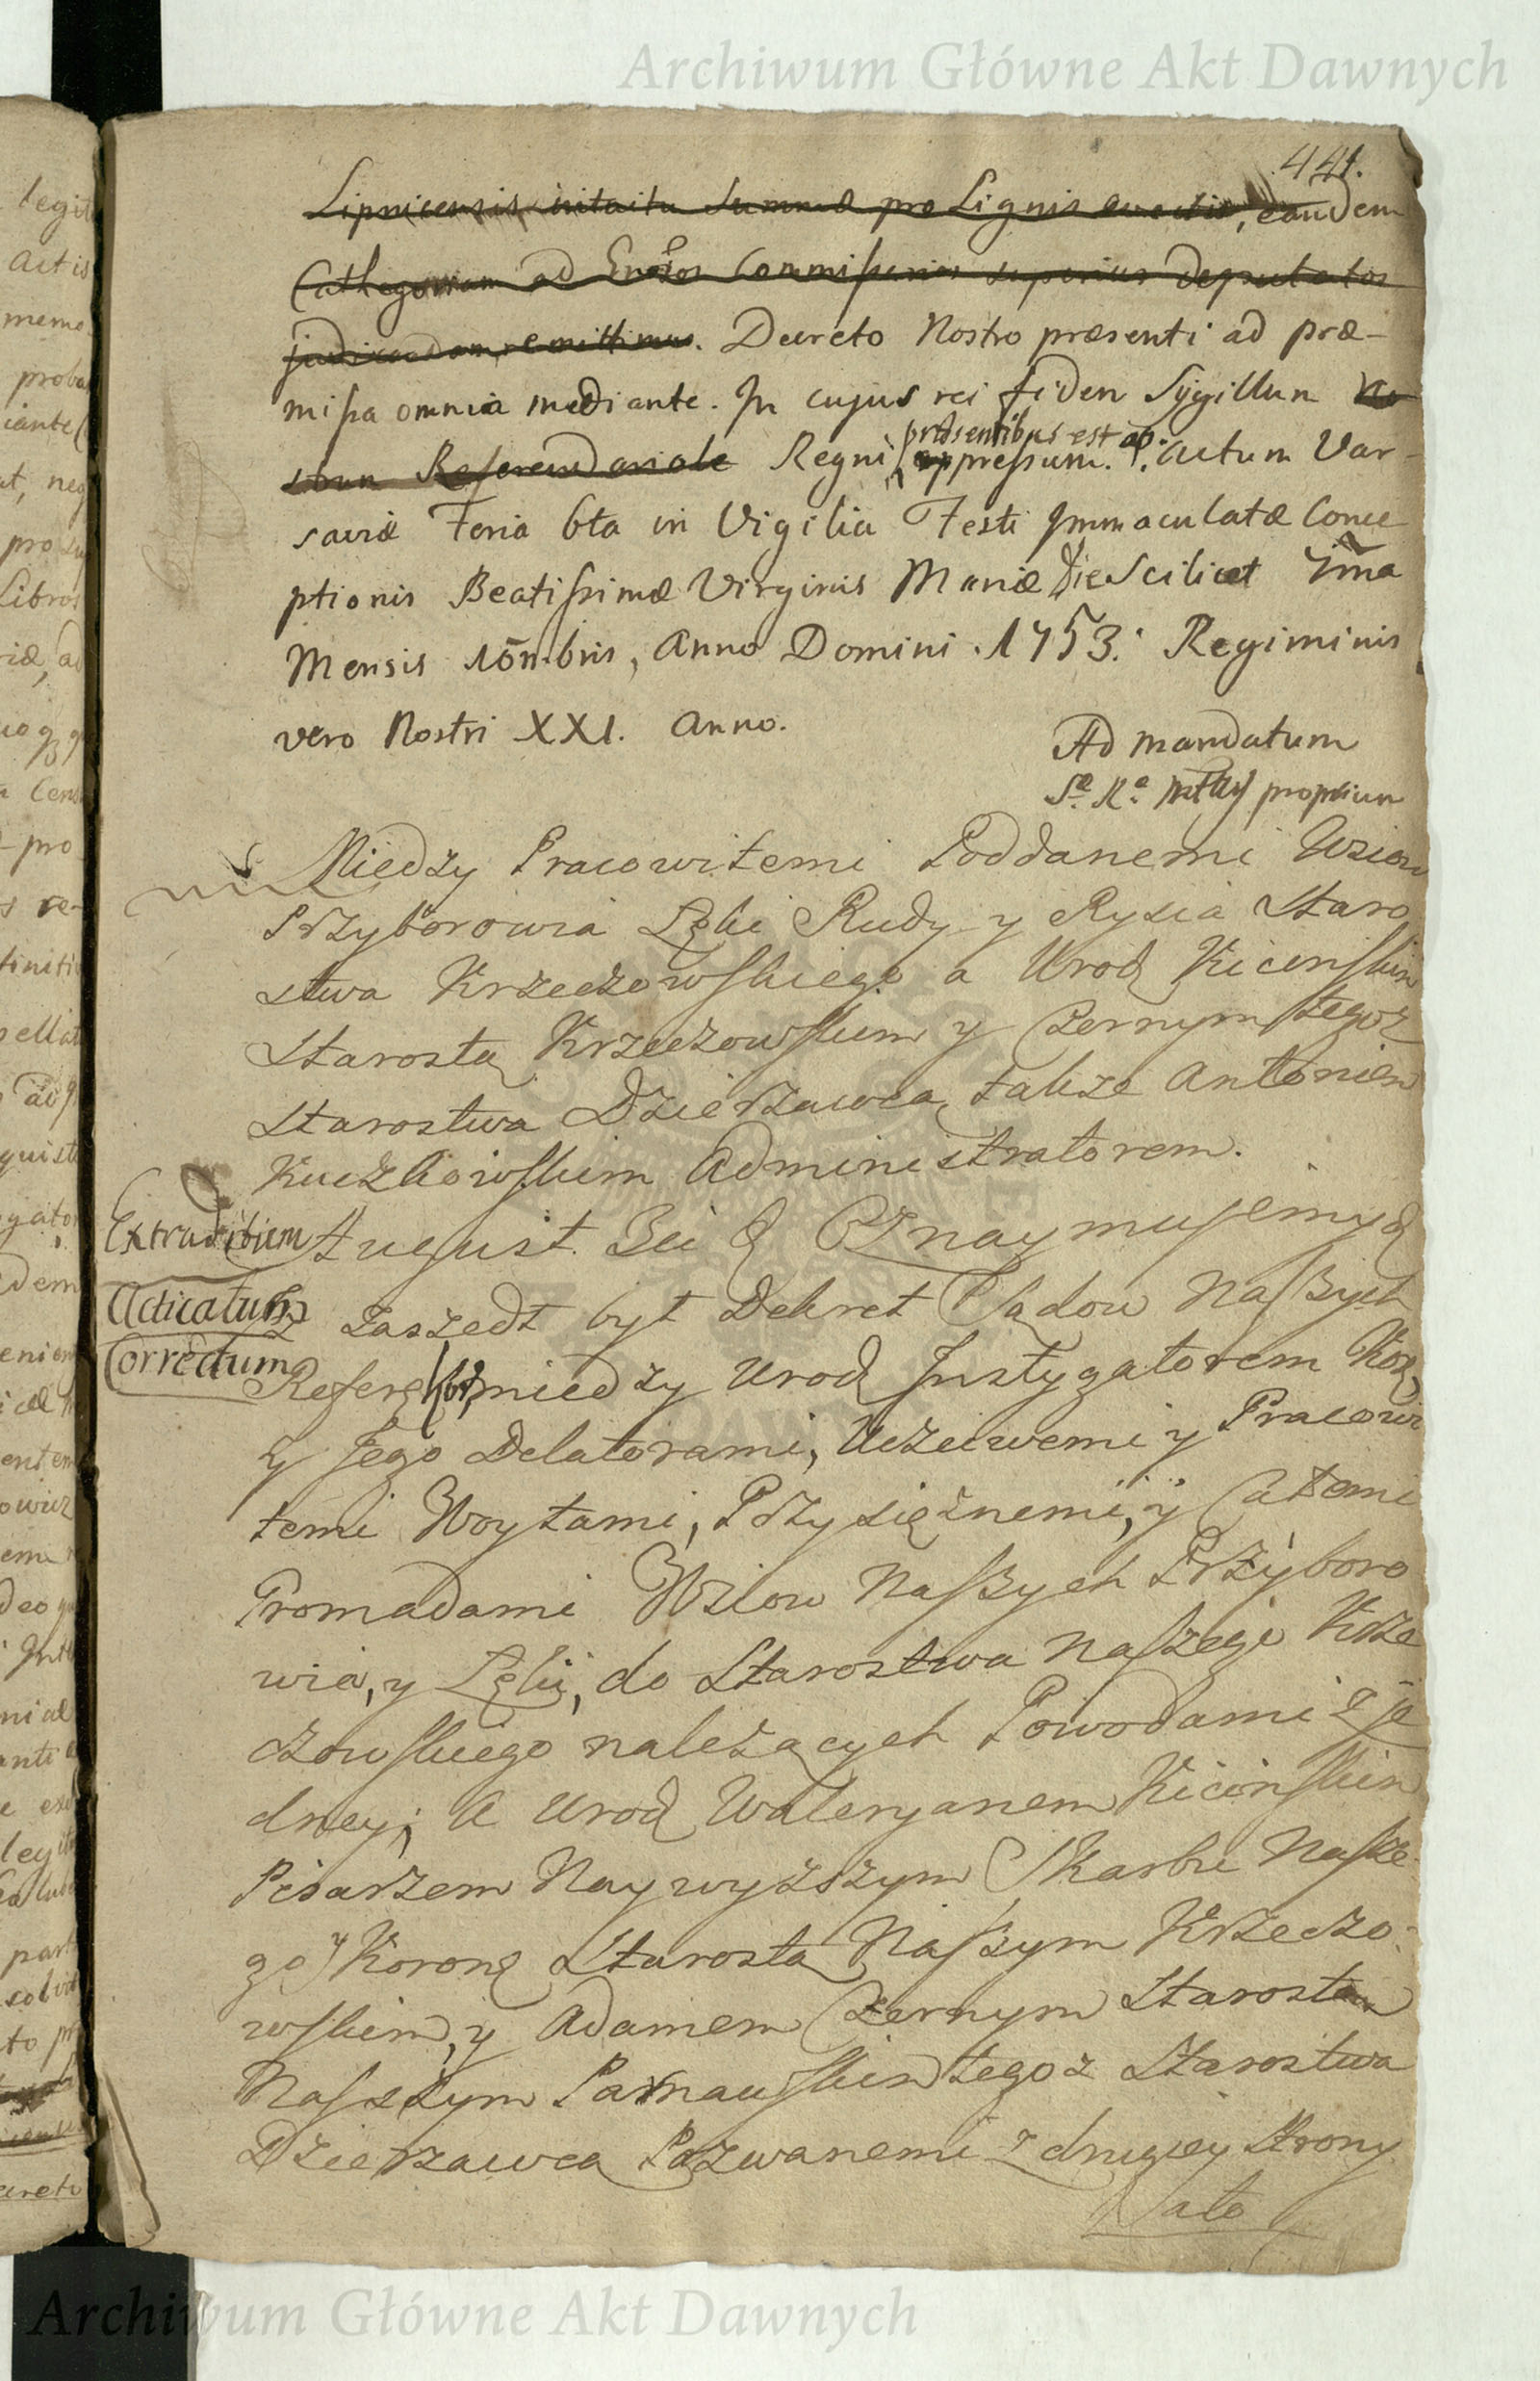 Archiwum Główne Akt Dawnych
441.
Lipnicensis intuitu Summæ pro Lignis evectis, eandem
Cathegoriam ad Commissarios superius deputatos
judicandam remittimus. Decreto Nostro præsenti ad præ-
missa omnia mediante. In cujus rei fidem Sygillum No
strum Referendariale Regni præsentibus est appressum. Actum Var-
saviæ Feria 6ta in Vigilia Festi Immaculatæ Conce
ptionis Beatissimæ Virginis Mariæ Die Scilicet 7ma
Mensis 10m̄bris, Anno Domini 1753. Regiminis
vero Nostri XXI. Anno.
Ad mandatum
Sæ. Ræ. Mttis proprium
Między Pracowitemi Poddanemi Wsiow
Przyborowia Lęki Rudy y Rysia Staro
stwa Krzeczowskiego a Urod Kicinskim
Starostą Krzeczowskim y Czernym tegoz
Starostwa Dzierzawcą, takze Antonim
Kuczkowskim Administratorem.
Extraditum
Acticatum
Correctum
August. 3ci & Oznaymujemy &
Iz zaszedł był Dekret Sądow Naszych
Referen Kor, między Urod Instygatorem Kor,
y Jego Delatorami, Uczciwemi y Pracowi
temi Woytami, Przysięznemi, y Całemi
Gromadami Wsiow Naszych Przyboro
wia, y Lęki, do Starostwa Naszego Krze
czowskiego należących Powodami z je
dney; A Urod Waleryanem Kicinskim
Pisarzem Naywyższym Skarbu Nasze-
go Koronę Starostą Naszym Krzeczo-
wskim, y Adamem Czernym Starostą
Naszym Parnawskim tegoz Starostwa
Dzierzawcą Pozwanemi z drugiey Strony
Archiwum Główne Akt Dawnych